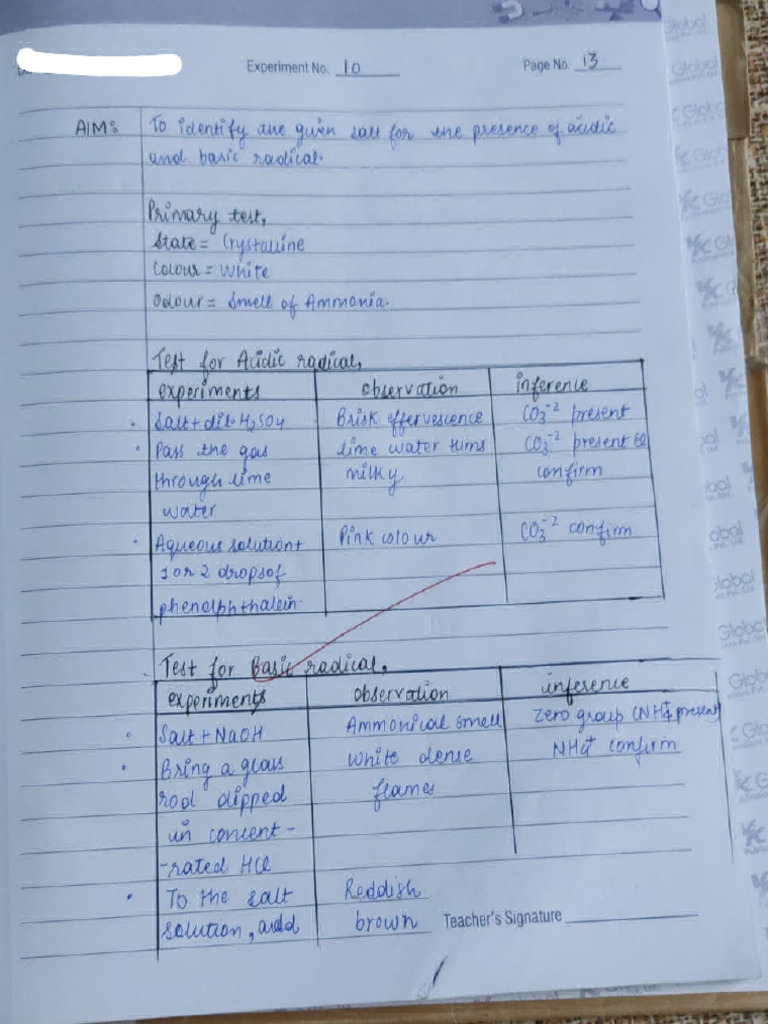 Experiment No. 10 Page No. 13
AIM: To identify the given salt for the presence of acidic
and basic radical.
Primary test,
State = Crystalline
Colour = White
Odour = Smell of Ammonia.
Test for Acidic radical,
experiments observation inference
Salt + dil. H2SO4 Brisk effervescence CO3-2 present
Pass the gas lime water turns CO3-2 present
through lime milky confirm
water
Aqueous solution+ Pink colour CO3-2 confirm
1 or 2 drops of
phenolphthalein.
Test for Basic radical,
experiments observation inference
Salt + NaOH Ammonical smell Zero group (NH4+ present
Bring a glass White dense NH4+ confirm
rod dipped flames
in concent-
-rated HCl
To the salt Reddish
solution, add brown Teacher's Signature
Global
Global